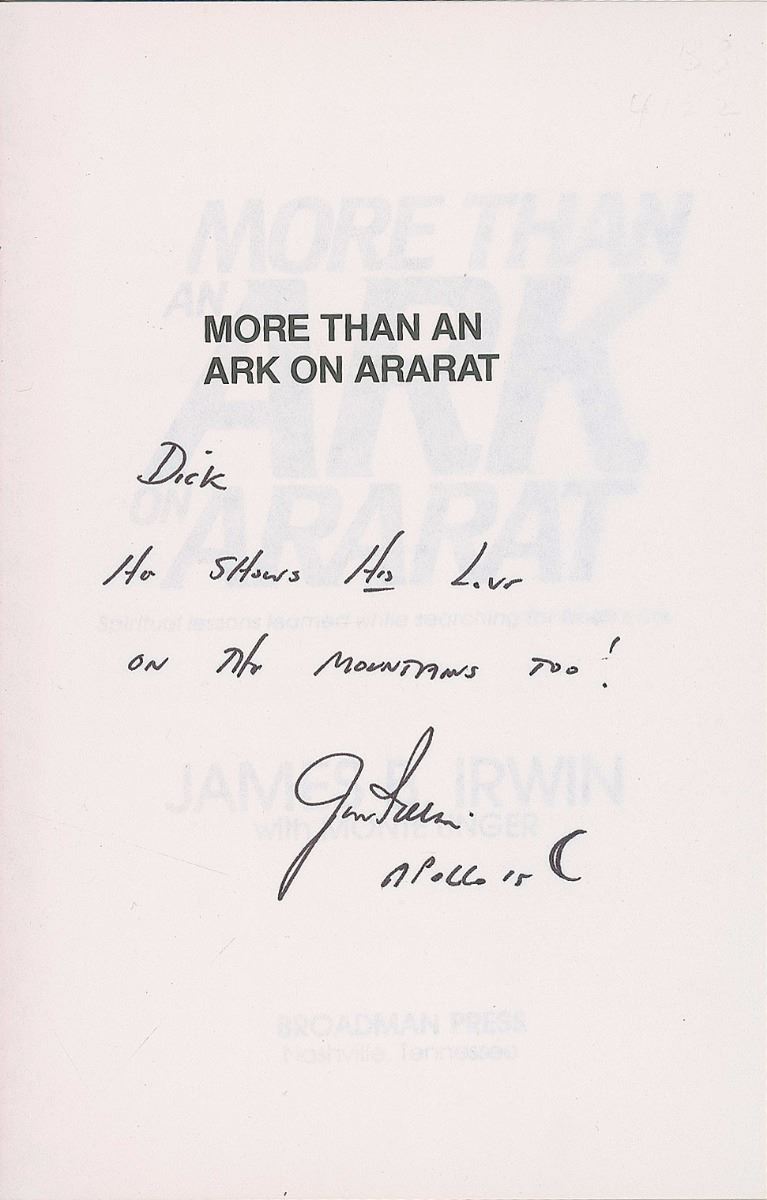 MORE THAN AN
ARK ON ARARAT
Dick
He SHows His Love
ON THe MOUNTAINS TOO!
Jim Irwin
APOLLO 15
MORE THAN
AN ARK
ON ARARAT
Spiritual lessons learned while searching for Noah's Ark
JAMES B. IRWIN
with MONTE UNGER
BROADMAN PRESS
Nashville, Tennessee